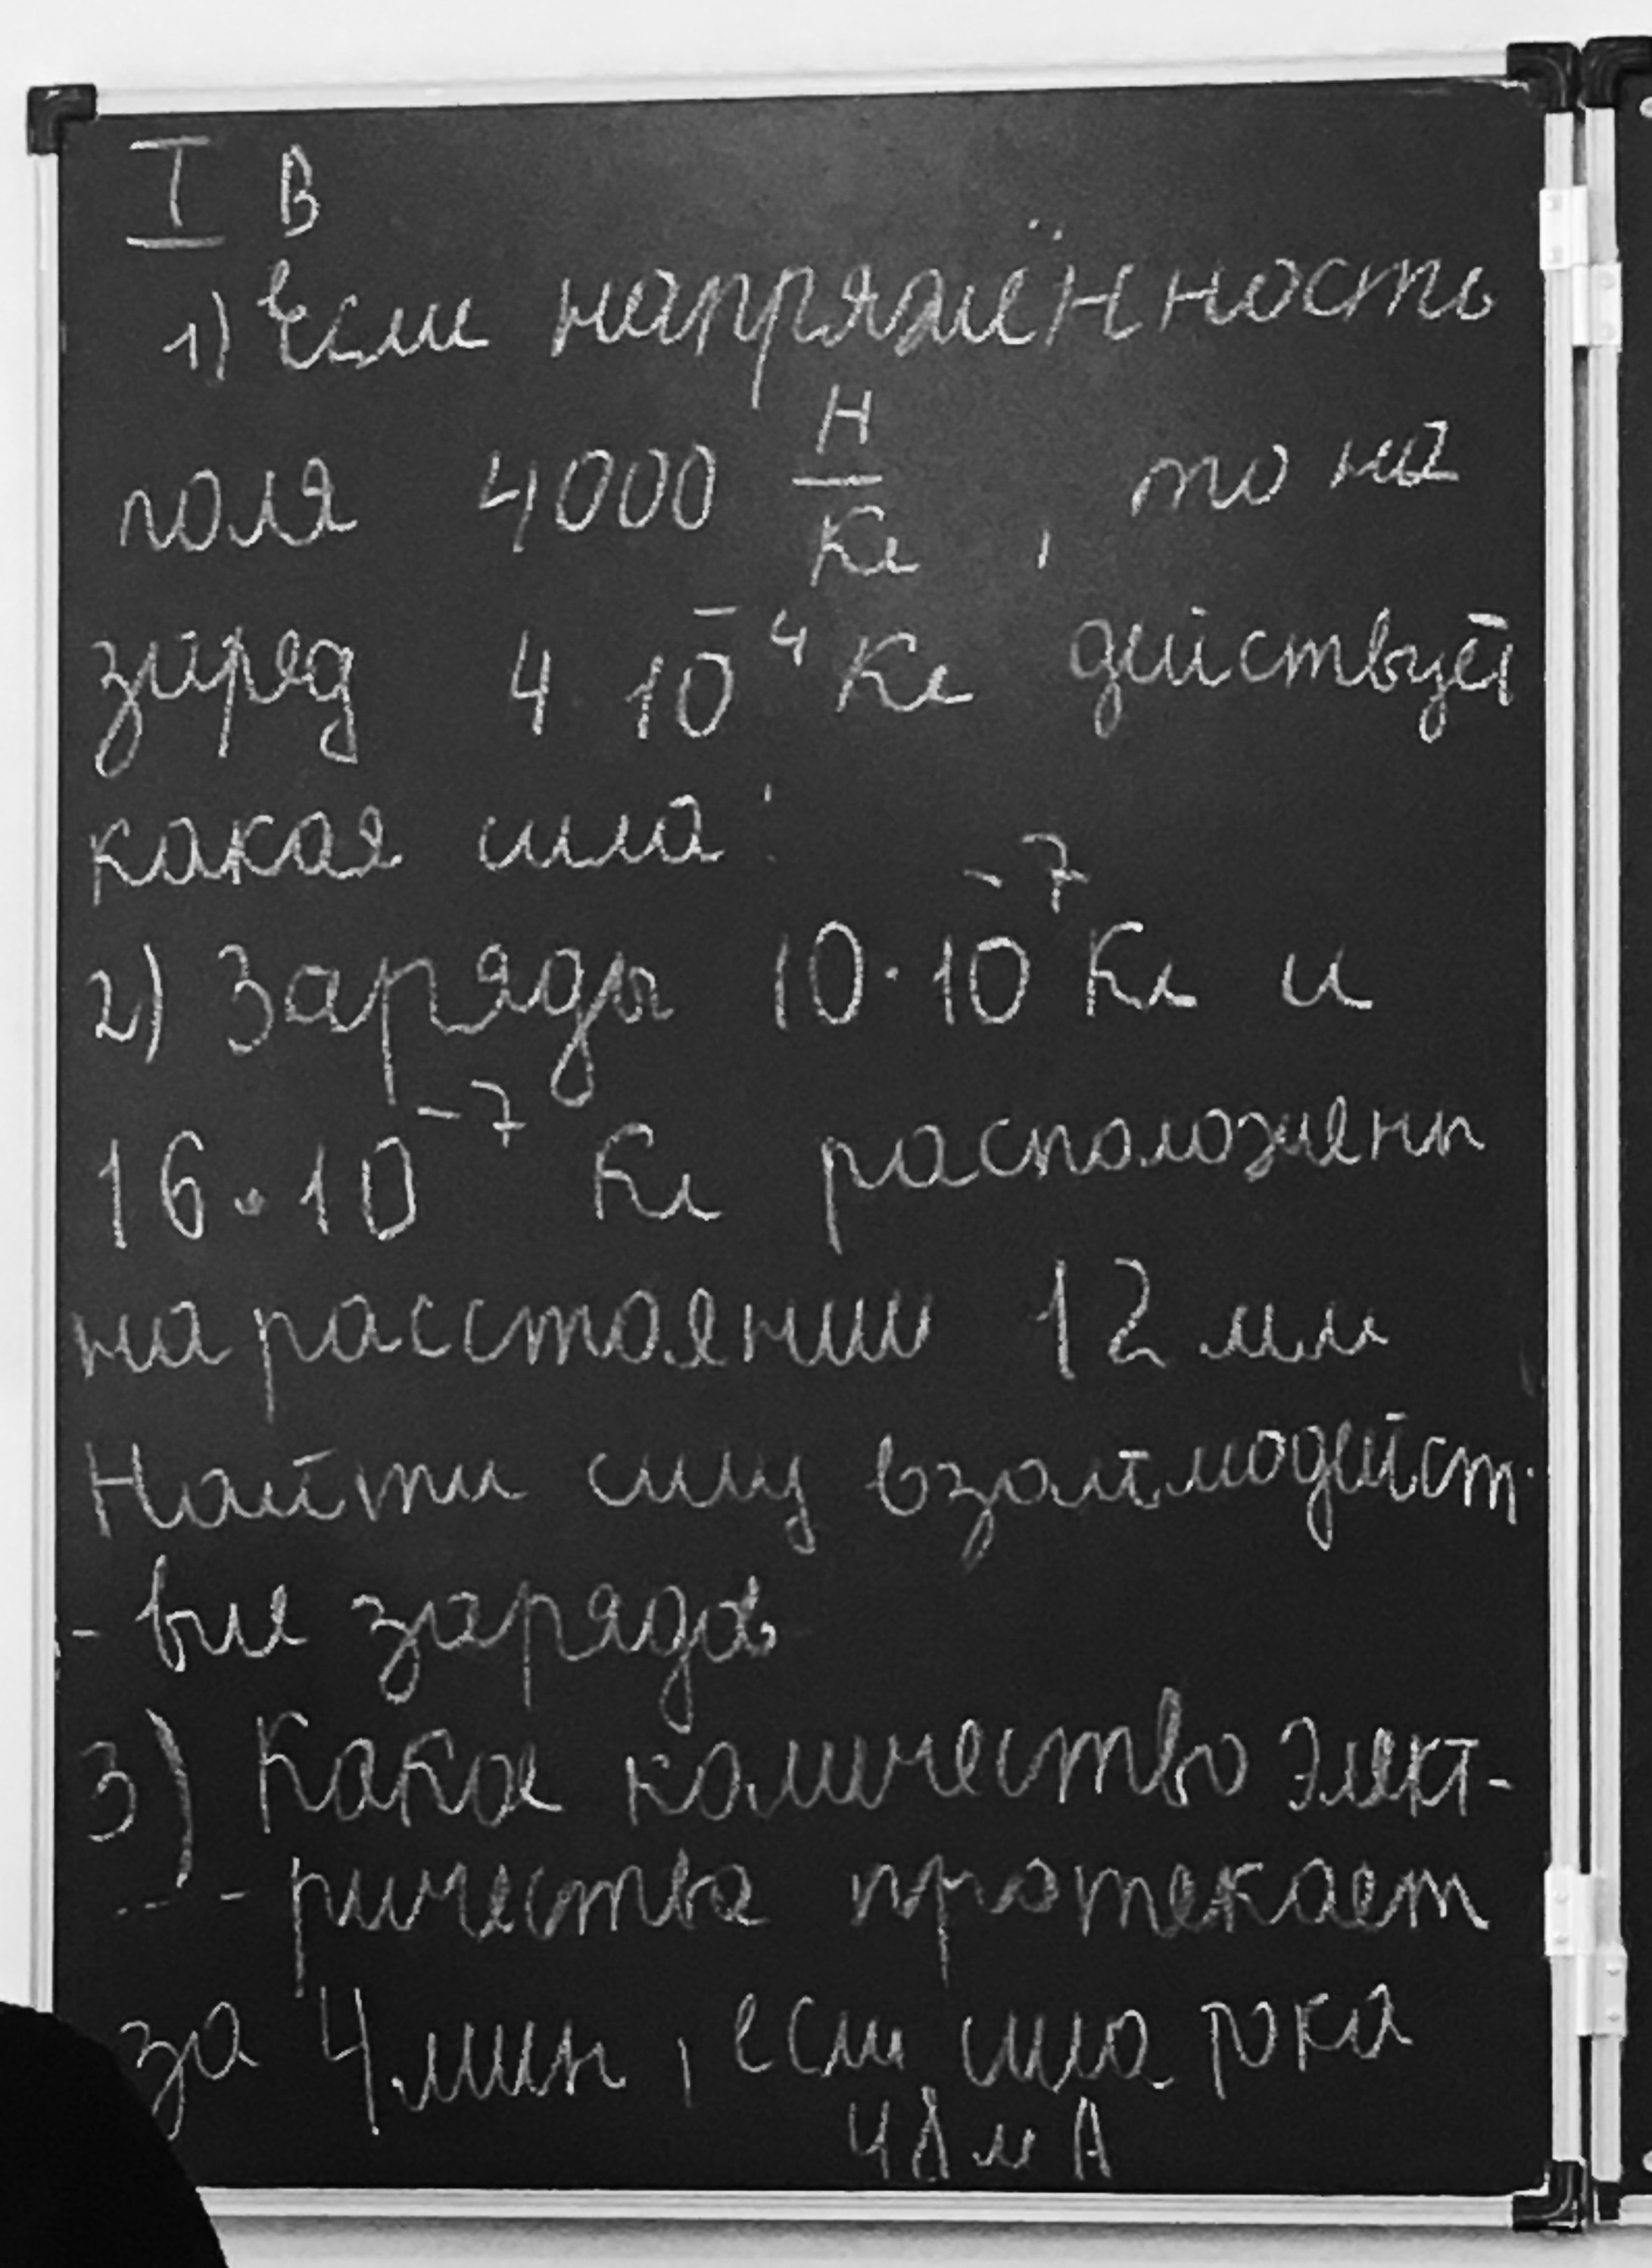 I В
1) Если напряжённость
поля 4000 Н/Кл , то на
заряд 4 · 10⁻⁴ Кл действует
какая сила?
2) Заряды 10 · 10⁻⁷ Кл и
16 · 10⁻⁷ Кл расположены
на расстоянии 12 мм
Найти силу взаимодейст-
- вие зарядов
3) Какое количество элект-
- ричества протекает
за 4 мин , если сила тока
48 мА